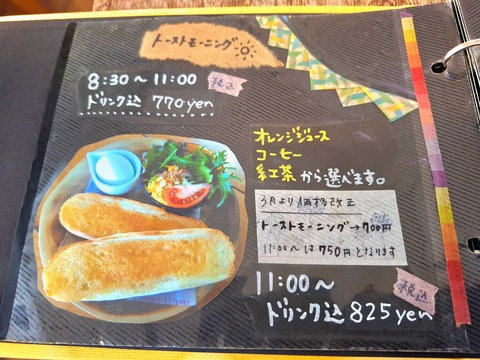 トーストモーニング
8:30～11:00 税込
ドリンク込 770yen
オレンジジュース
コーヒー
紅茶 から選べます。
3月より価格改正
トーストモーニング→700円
11:00～は750円となります
11:00～
税込
ドリンク込 825yen